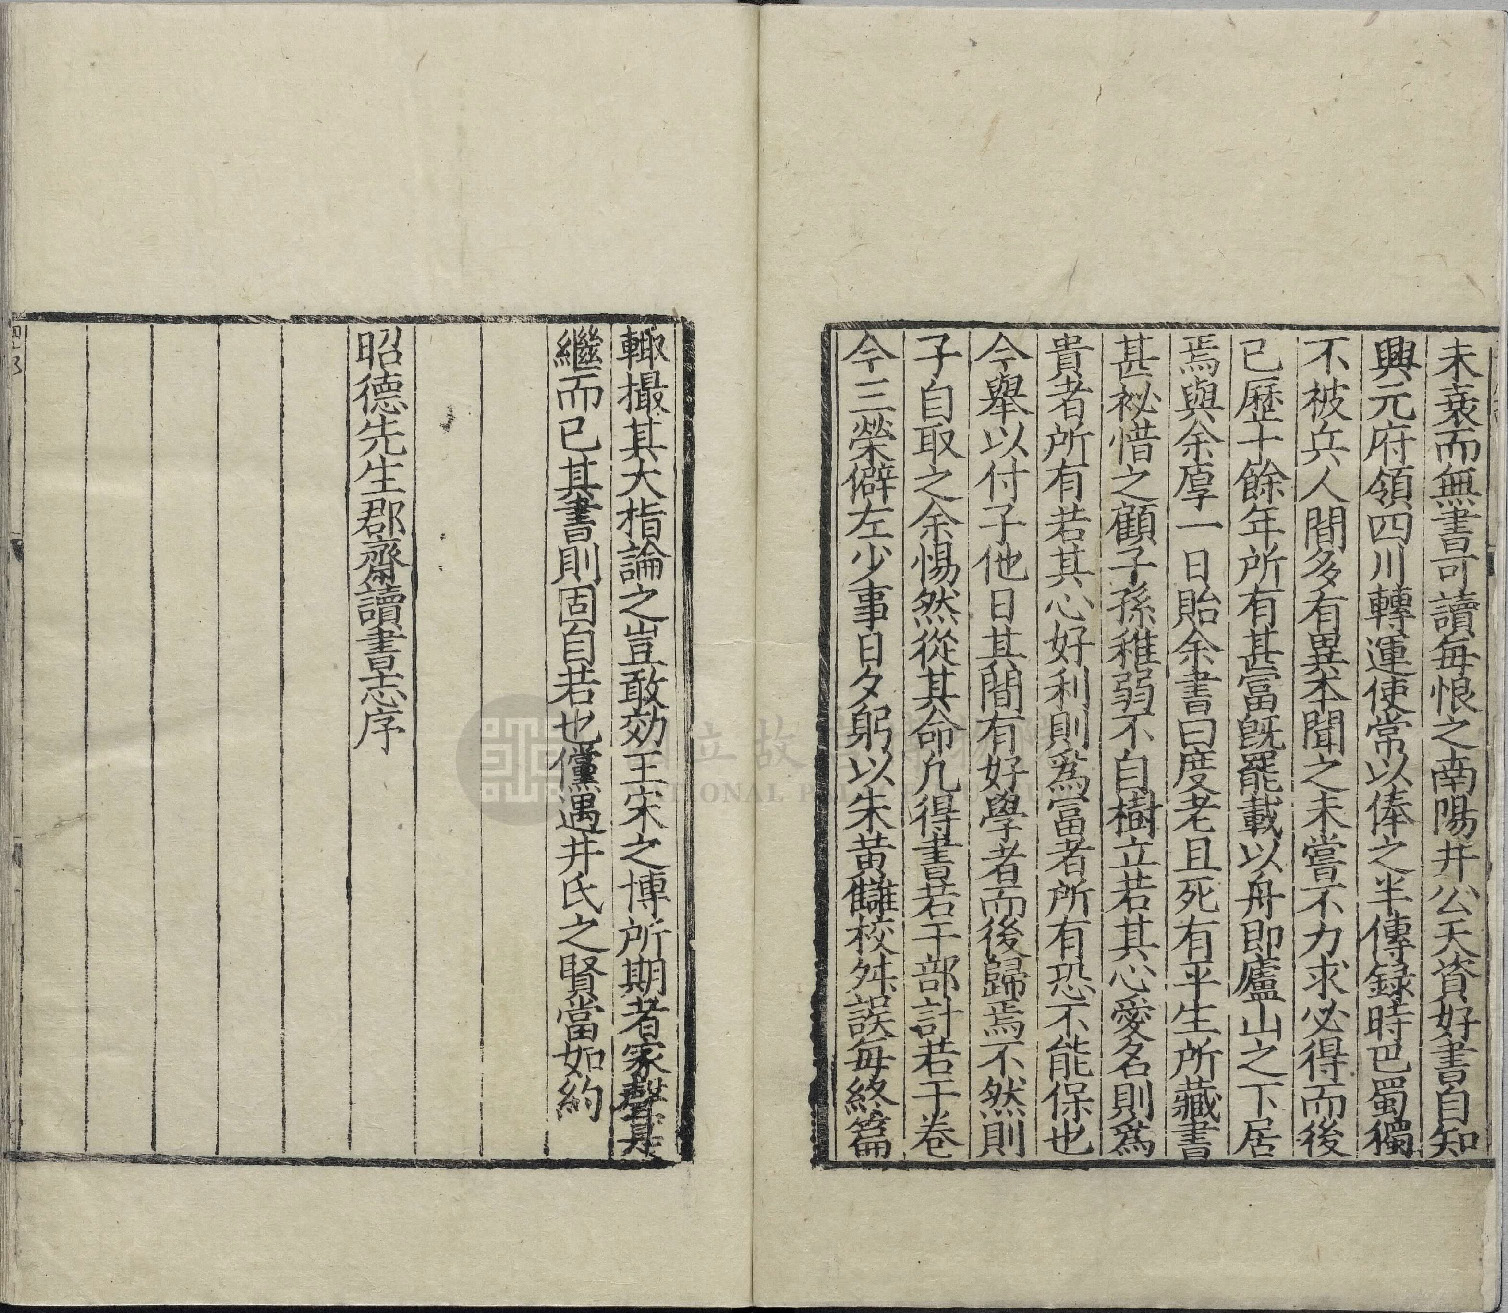 未衰而無書可讀每恨之南陽井公天資好書自知
興元府領四川轉運使常以俸之半傳録時巴蜀獨
不被兵人間多有異本聞之未嘗不力求必得而後
已歷十餘年所有甚富旣罷載以舟即廬山之下居
焉與余厚一日貽余書曰度老且死有平生所藏書
甚祕惜之顧子孫稚弱不自樹立若其心愛名則爲
貴者所有若其心好利則爲富者所有恐不能保也
今舉以付子他日其間有好學者而後歸焉不然則
子自取之余惕然從其命凡得書若干部計若干卷
今三榮僻左少事日夕躬以朱黄讎校舛誤每終篇
輙撮其大指論之豈敢効王宋之博所期者家聲是
繼而已其書則固自若也儻遇井氏之賢當如約
昭德先生郡齋讀書志序